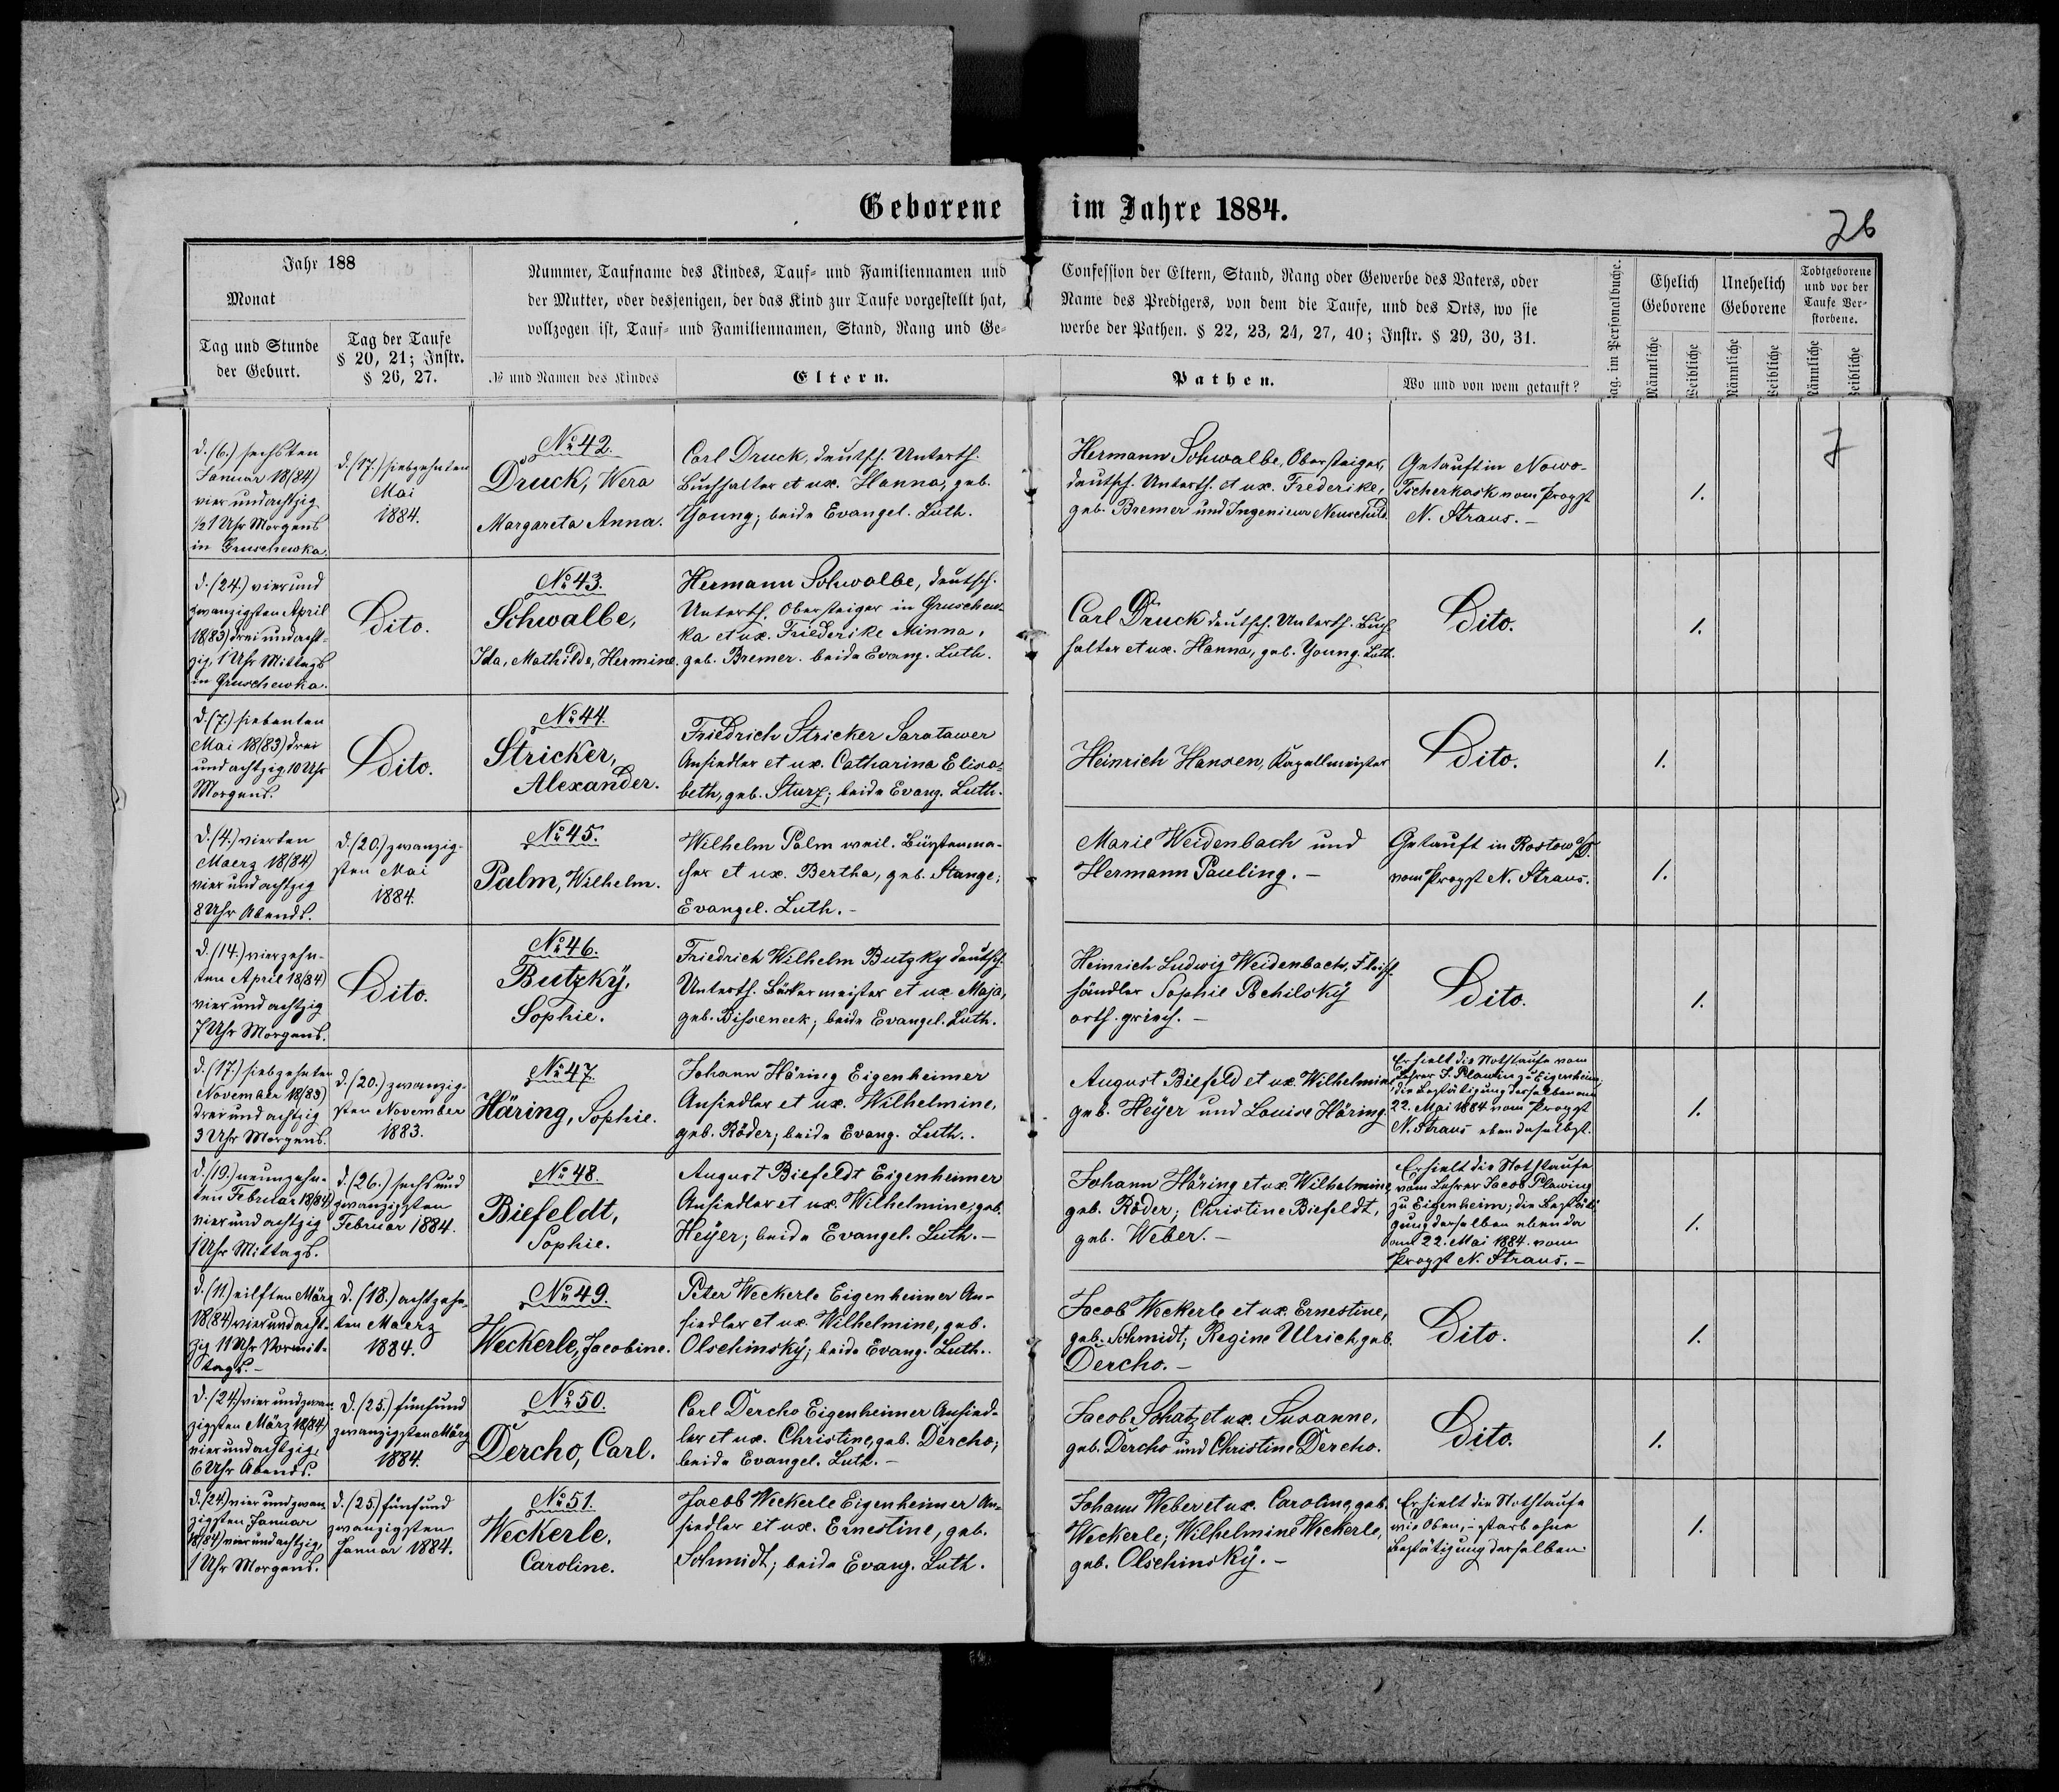 Geborene im Jahre 1884.
26
Jahr 188
Monat
Tag und Stunde
der Geburt.
Tag der Taufe
§ 20, 21; Instr.
§ 26, 27.
Nummer, Taufname des Kindes, Tauf- und Familiennamen und
der Mutter, oder desjenigen, der das Kind zur Taufe vorgestellt hat,
vollzogen ist, Tauf- und Familiennamen, Stand, Rang und Ge-
№ und Namen des Kindes
Eltern.
Confession der Eltern, Stand, Rang oder Gewerbe des Vaters, oder
Name des Predigers, von dem die Taufe, und des Orts, wo sie
werbe der Pathen. § 22, 23, 24, 27, 40; Instr. § 29, 30, 31.
Pathen.
Wo und von wem getauft?
Pag. im Personalbuche.
Ehelich
Geborene
Unehelich
Geborene
Todtgeborene
und vor der
Taufe Ver-
storbene.
Männliche
Weibliche
Männliche
Weibliche
Männliche
Weibliche
d. (6.) sechsten
Januar 18(84)
vier und achtzig
½1 Uhr Morgens
in Gruschewka.
d. (17.) siebzehnten
Mai
1884.
№ 42.
Druck, Wera
Margareta Anna.
Carl Druck, deutsch. Unterth.
Buchhalter et ux. Hanna, geb.
Young; beide Evangel. Luth.
Hermann Schwalbe, Obersteiger,
deutsch. Unterth. et ux. Frederike,
geb. Bremer und Ingenieur Neuschild.
Getauft in Nowo-
Tscherkask vom Propst
N. Straus. –
1.
7
d. (24.) vier und
zwanzigsten April
18(83) drei und acht-
zig, 1 Uhr Mittags
in Gruschewka.
Dito.
№ 43.
Schwalbe,
Ida, Mathilde, Hermine.
Hermann Schwalbe, deutsch.
Unterth. Obersteiger in Gruschew-
ka et ux. Friederike Minna,
geb. Bremer. beide Evang. Luth.
Carl Druck deutsch. Unterth. Buch-
halter et ux. Hanna, geb. Young. Luth.
Dito.
1.
d. (7.) siebenten
Mai 18(83) drei
und achtzig 10 Uhr
Morgens.
Dito.
№ 44.
Stricker,
Alexander.
Friedrich Stricker Saratawer
Ansiedler et ux. Catharina Elisa-
beth, geb. Sturz; beide Evang. Luth.
Heinrich Hansen, Kapellmeister
Dito.
1.
d. (4.) vierten
Maerz 18(84)
vier und achtzig
8 Uhr Abends.
d. (20.) zwanzig-
sten Mai
1884.
№ 45.
Palm, Wilhelm.
Wilhelm Palm weil. Bürstenma-
cher et ux. Bertha, geb. Stange;
Evangel. Luth. –
Marie Weidenbach und
Hermann Pauling. –
Getauft in Rostow a/D.
vom Propst N. Straus.
1.
d. (14.) vierzehn-
ten April 18(84)
vier und achtzig
7 Uhr Morgens.
Dito.
№ 46.
Butzky,
Sophie.
Friedrich Wilhelm Butzky deutsch.
Unterth. Bäckermeister et ux. Maja,
geb. Bisseneek; beide Evangel. Luth.
Heinrich Ludwig Weidenbach, Fleisch-
händler Sophie Pschilsky
orth. griech. –
Dito.
1.
d. (17.) siebzehnten
November 18(83)
drei und achtzig
3 Uhr Morgens.
d. (20.) zwanzig-
sten November
1883.
№ 47.
Häring, Sophie.
Johann Häring Eigenheimer
Ansiedler et ux. Wilhelmine,
geb. Röder; beide Evang. Luth..
August Biefeld et ux. Wilhelmine
geb. Heyer und Louise Häring.
Erhielt die Nothtaufe vom
Lehrer J. Plawing zu Eigenheim;
die Bestätigung derselben am
22. Mai 1884 vom Propst
N. Straus ebendaselbst.
1.
d. (19.) neunzehn-
ten Februar 18(84)
vier und achtzig
1 Uhr Mittags.
d. (26.) sechs und
zwanzigsten
Februar 1884.
№ 48.
Biefeldt,
Sophie.
August Biefeldt Eigenheimer
Ansiedler et ux. Wilhelmine, geb.
Heyer; beide Evangel. Luth. –
Johann Häring et ux. Wilhelmine,
geb. Röder; Christine Biefeldt,
geb. Weber. –
Erhielt die Nothtaufe
vom Lehrer Jacob Plawing
zu Eigenheim; die Bestäti-
gung derselben ebenda
am 22. Mai 1884. vom
Propst N. Straus. –
1.
d. (11.) eilften März
18(84) vier und acht-
zig 11 Uhr Vormit-
tags. –
d. (18.) achtzehn-
ten Maerz
1884.
№ 49.
Weckerle, Jacobine.
Peter Weckerle Eigenheimer An-
siedler et ux. Wilhelmine, geb.
Olschinsky; beide Evang. Luth..
Jacob Weckerle et ux. Ernestine,
geb. Schmidt; Regine Ulrich geb.
Dercho. –
Dito.
1.
d. (24.) vier und zwan-
zigsten März 18(84)
vier und achtzig,
6 Uhr Abends.
d. (25.) fünf und
zwanzigsten März
1884.
№ 50.
Dercho, Carl.
Carl Dercho Eigenheimer Ansied-
ler et ux. Christine, geb. Dercho;
beide Evangel. Luth. –
Jacob Schatz et ux. Susanne,
geb. Dercho und Christine Dercho.
Dito.
1.
d. (24) vier und zwan-
zigsten Januar
18(84) vier und achtzig,
1 Uhr Morgens.
d. (25) fünf und
zwanzigsten
Januar 1884.
№ 51.
Weckerle,
Caroline.
Jacob Weckerle Eigenheimer An-
siedler et ux. Ernestine, geb.
Schmidt; beide Evang. Luth.
Johann Weber et ux. Caroline, geb.
Weckerle; Wilhelmine Weckerle,
geb. Olschinsky. –
Erhielt die Nothtaufe
wie Oben, – starb ohne
Bestätigung derselben.
1.